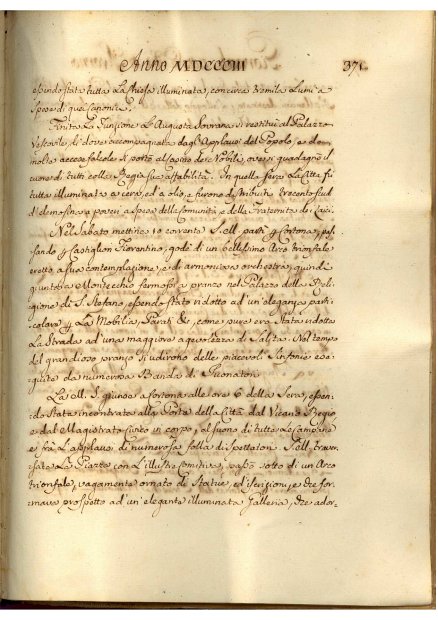 Anno MDCCCIII 371
essendo stata tutta La Chiesa illuminata, con circa tremila Lumi a
spese di quei Canonici.
Finita La Funzione L'Augusta Sovrana si restituì al Palazzo
Vescovile di dove accompagnata dagl'Applausi del Popolo, e da
molte accese fiaccole si portò al Casino de' Nobili, ove si guadagnò il
cuore di tutti colla Regia sua affabilità. In quella sera La Città fù
tutta illuminata a cera, ed a olio, e furono distribuiti trecento scudi
d'elemosina a poveri a spese della Comunità e della Fraternita de' Laici.
Nel Sabato mattina 10 corrente S. M. partì p. Cortona, e pas-
sando p. Castiglion Fiorentino, godè di un bellissimo Arco trionfale
eretto a sua contemplazione, e di armoniosa orchestra, quindi
giunta a Montecchio fermossi a pranzo nel Palazzo della Reli-
gione di S. Stefano, essendo stato ridotto ad un'eleganza parti-
colare p. La Mobilia, Parati &c, come pure era stata ridotta
La Strada ad una maggiore agevolezza di Salita. Nel tempo
del grandioso pranzo si udirono delle piacevoli Sinfonie ese-
guite da numerosa Banda di Suonatori.
La M. S. giunse a Cortona alle ore 6 della Sera, essen-
do stata incontrata alla Porta della Città dal Vicario Regio
e dal Magistrato Civico in corpo, al suono di tutte Le Campane
e frà L'applauso di numerosa folla di spettatori. S. M. traver-
sata La Piazza con L'illustre comitiva, passò sotto di un Arco
trionfale, vagamente ornato di Statue, ed iscrizioni, e che for-
mava prospetto ad un'elegante illuminata Galleria, che ador-